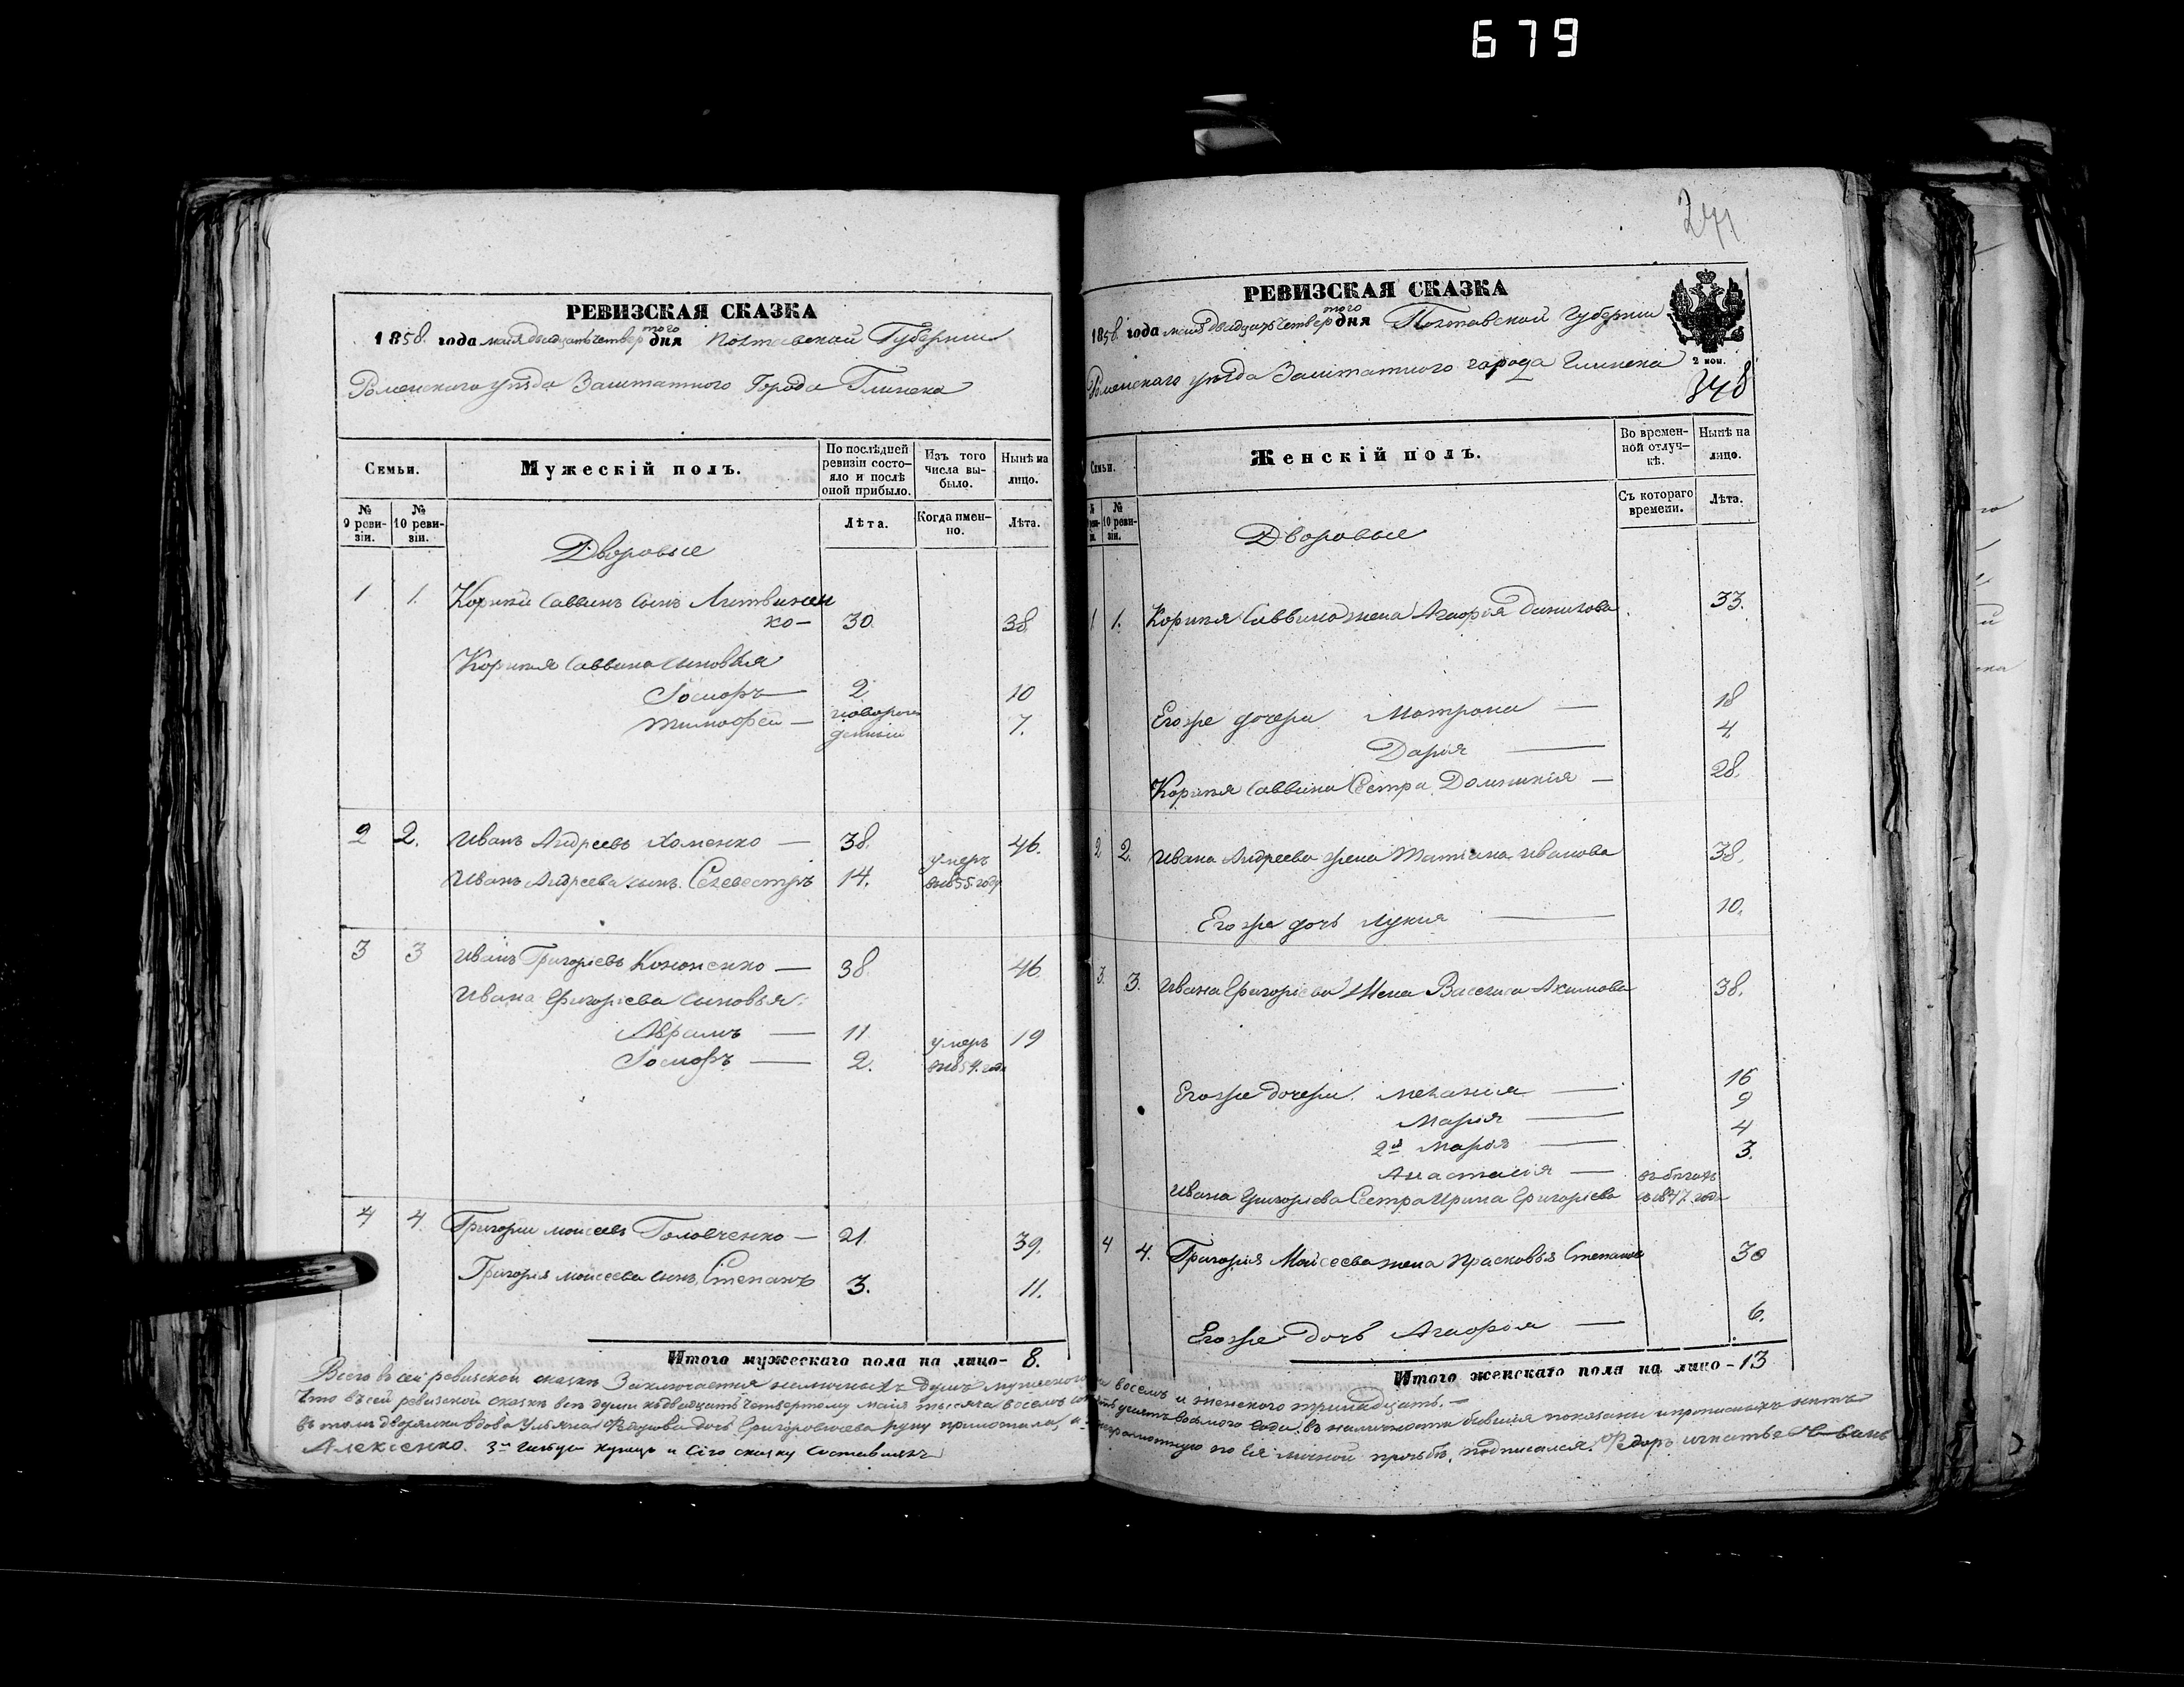 679
РЕВИЗСКАЯ СКАЗКА
1858. года маія двадцать четвертого дня Полтавской Губерніи
Роменскаго уѣзда Заштатного Города Глинска
Семьи.
Мужескій полъ.
По послѣдней ревизіи состояло и послѣ оной прибыло.
Изъ того числа выбыло.
Нынѣ на лицо.
№ 9 ревизіи.
№ 10 ревизіи.
Лѣта.
Когда именно.
Лѣта.
Дворовые
1 1. Корнѣй Саввинъ сынъ Литвинен
ко — 30. 38.
Корнѣя Саввина сыновья
Іосифъ — 2 10
Тимофей — новорож
денный 7.
2 2. Иванъ Андреевъ Хоменко — 38. 46.
Иванъ Андреева сынъ Селевестръ 14. умеръ
в 1855. году
3 3 Иванъ Григоріевъ Кононенко — 38. 46.
Ивана Григоріева сыновья:
Абрамъ — 11 19
Іосифъ — 2. умеръ
в 1854. году
4 4. Григорій Моисеевъ Головченко — 21. 39.
Григорія Моисеева сынъ, Степанъ 3. 11.
Итого мужескаго пола на лицо- 8.
271
РЕВИЗСКАЯ СКАЗКА
1858. года маія двадцать четвертого дня Полтавской Губерніи
2 коп.
Роменскаго уѣзда Заштатного города Глинска
348
Семьи.
Женскій полъ.
Во временной отлучкѣ.
Нынѣ на лицо.
№ 10 ревизіи.
Съ котораго времени.
Лѣта.
Дворовые
1 1. Корнѣя Саввина жена Агафія Данилова 33.
Его же дочери Матрона — 18
Дарія — 4.
Корнѣя Саввина Сестра Домникія — 28.
2 2. Ивана Андреева жена Татіана Иванова 38.
Его же дочь Лукия — 10.
3. 3. Ивана Григоріева Жена Василиса Акимова 38.
Его же дочери. Меланія — 16
Марія — 9
2я Марія — 4
Анастасія — 3.
Ивана Григоріева Сестра Ирина Григоріева въ бегахъ
съ 1847. года
4 4. Григорія Моисеева жена Прасковья Степанова 30
Его же дочь Агафія — 6.
Итого женскаго пола на лицо -13
Всего в сей ревизской сказкѣ Заключается наличныхъ душъ мужеского восемь и женского тринадцать. —
Что въ сей ревизской сказкѣ всѣ души къ двадцать четвертому маія тысяча восемь сотъ пятьдесятъ восьмого года, въ наличности бывшія показаны и прописныхъ нѣтъ
въ томъ дворянка вдова Ульяна Федорова дочь Григоровичева руку приложила, а неграмотную по Ея личной прозьбѣ, подписался. Федоръ Игнатьевъ сынъ
Алексенко. 3й гильди купецъ и Сію сказку Составилъ